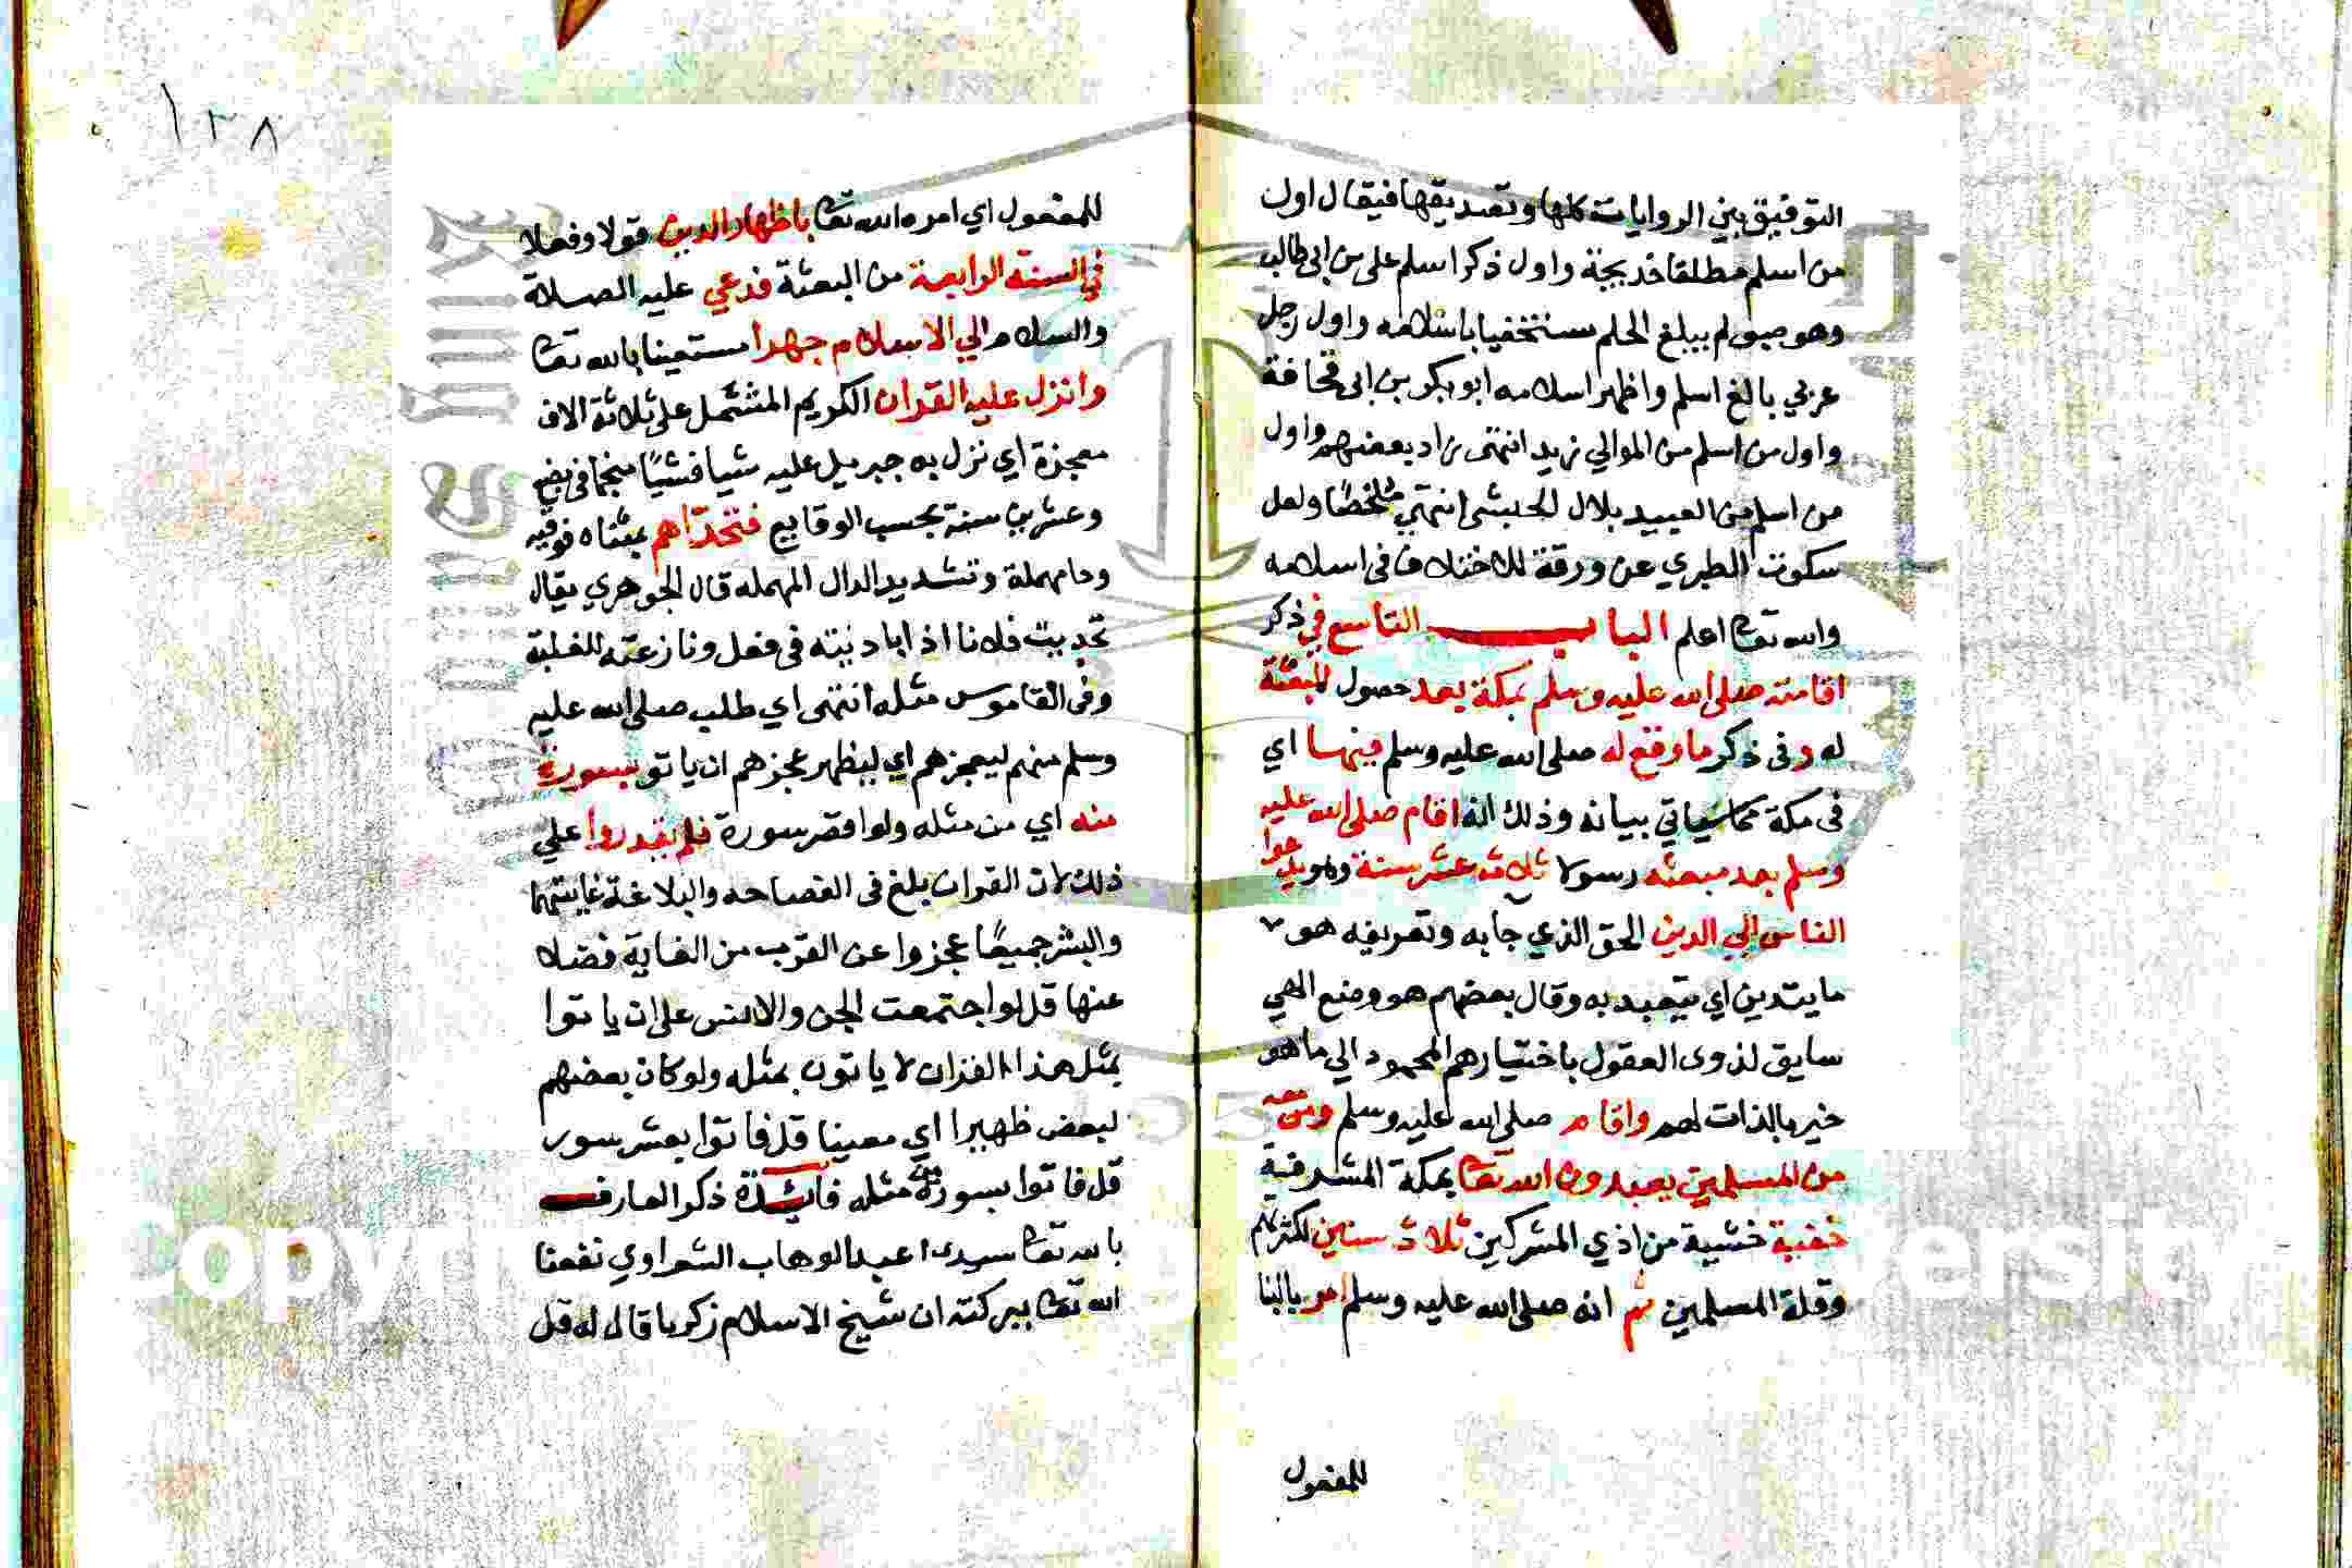 التوفيق بين الروايات كلها وتصديقها فيقال اول
من اسلم مطلقا خديجة واول ذكر اسلم علي بن ابي طالب
وهو صبي لم يبلغ الحلم مستخفيا باسلامه واول رجل
عربي بالغ اسلم واظهر اسلامه ابو بكر بن ابي قحافة
واول من اسلم من الموالي زيد انتهى زاد بعضهم واول
من اسلم من العبيد بلال الحبشي انتهي ملخصًا ولعل
سكوت الطبري عن ورقة للاختلاف في اسلامه
والله تعا اعلم الباب التاسع في ذكر
اقامته صلى الله عليه وسلم بمكة بعد حصول البعثة
له وفى ذكر ما وقع له صلى الله عليه وسلم فيها اي
فى مكة مما سياتي بيانه وذلك انه اقام صلى الله عليه
وسلم بعد مبعثه رسولا ثلاث عشر سنة وهو يدعوا
الناس الي الدين الحق الذي جا به وتعريفه هو
ما يتدين اي يتعبد به وقال بعضهم هو وضع الهي
سايق لذوى العقول باختيارهم المحمود الي ما هو
خير بالذات لهم واقام صلى الله عليه وسلم ومن معه
من المسلمين يعبدون الله تعا بمكة المشرفة
خفية خشية من اذي المشركين ثلاث سنين لكثرتهم
وقلة المسلمين ثم انه صلى الله عليه وسلم امر بالبنا
للمفعول
١٣٨
للمفعول اي امره الله تعا باظهار الدين قولا وفعلا
في السنة الرابعة من البعثة فدعي عليه الصلاة
والسلام الي الاسلام جهرا مستعينا بالله تعا
وانزل عليه القران الكريم المشتمل على ثلاثة الاف
معجزة اي نزل به جبريل عليه شيا فشيًا منجما في بضع
وعشرين سنة بحسب الوقايع فتحدّاهم بمثناه فوقيه
وحا مهملة وتشديد الدال المهمله قال الجوهري يقال
تحديت فلانا اذا باديته فى فعل ونازعته للغلبة
وفى القاموس مثله انتهى اي طلب صلى الله عليه
وسلم منهم ليعجزهم اي ليظهر عجزهم ان ياتو بسورة
منه اي من مثله ولو اقصر سورة فلم يقدروا علي
ذلك لان القران بلغ فى الفصاحه والبلاغة غايتهما
والبشر جميعًا عجزوا عن القرب من الغاية فضلا
عنها قل لو اجتمعت الجن والانس على ان ياتوا
بمثل هذا القران لا ياتون بمثله ولو كان بعضهم
لبعض ظهيرا اي معينا قل فاتوا بعشر سور
قل فاتوا بسورة من مثله فايدة ذكر العارف
بالله تعا سيدى عبد الوهاب الشعراوي نفعنا
الله تعا ببركته ان شيخ الاسلام زكريا قال له قل